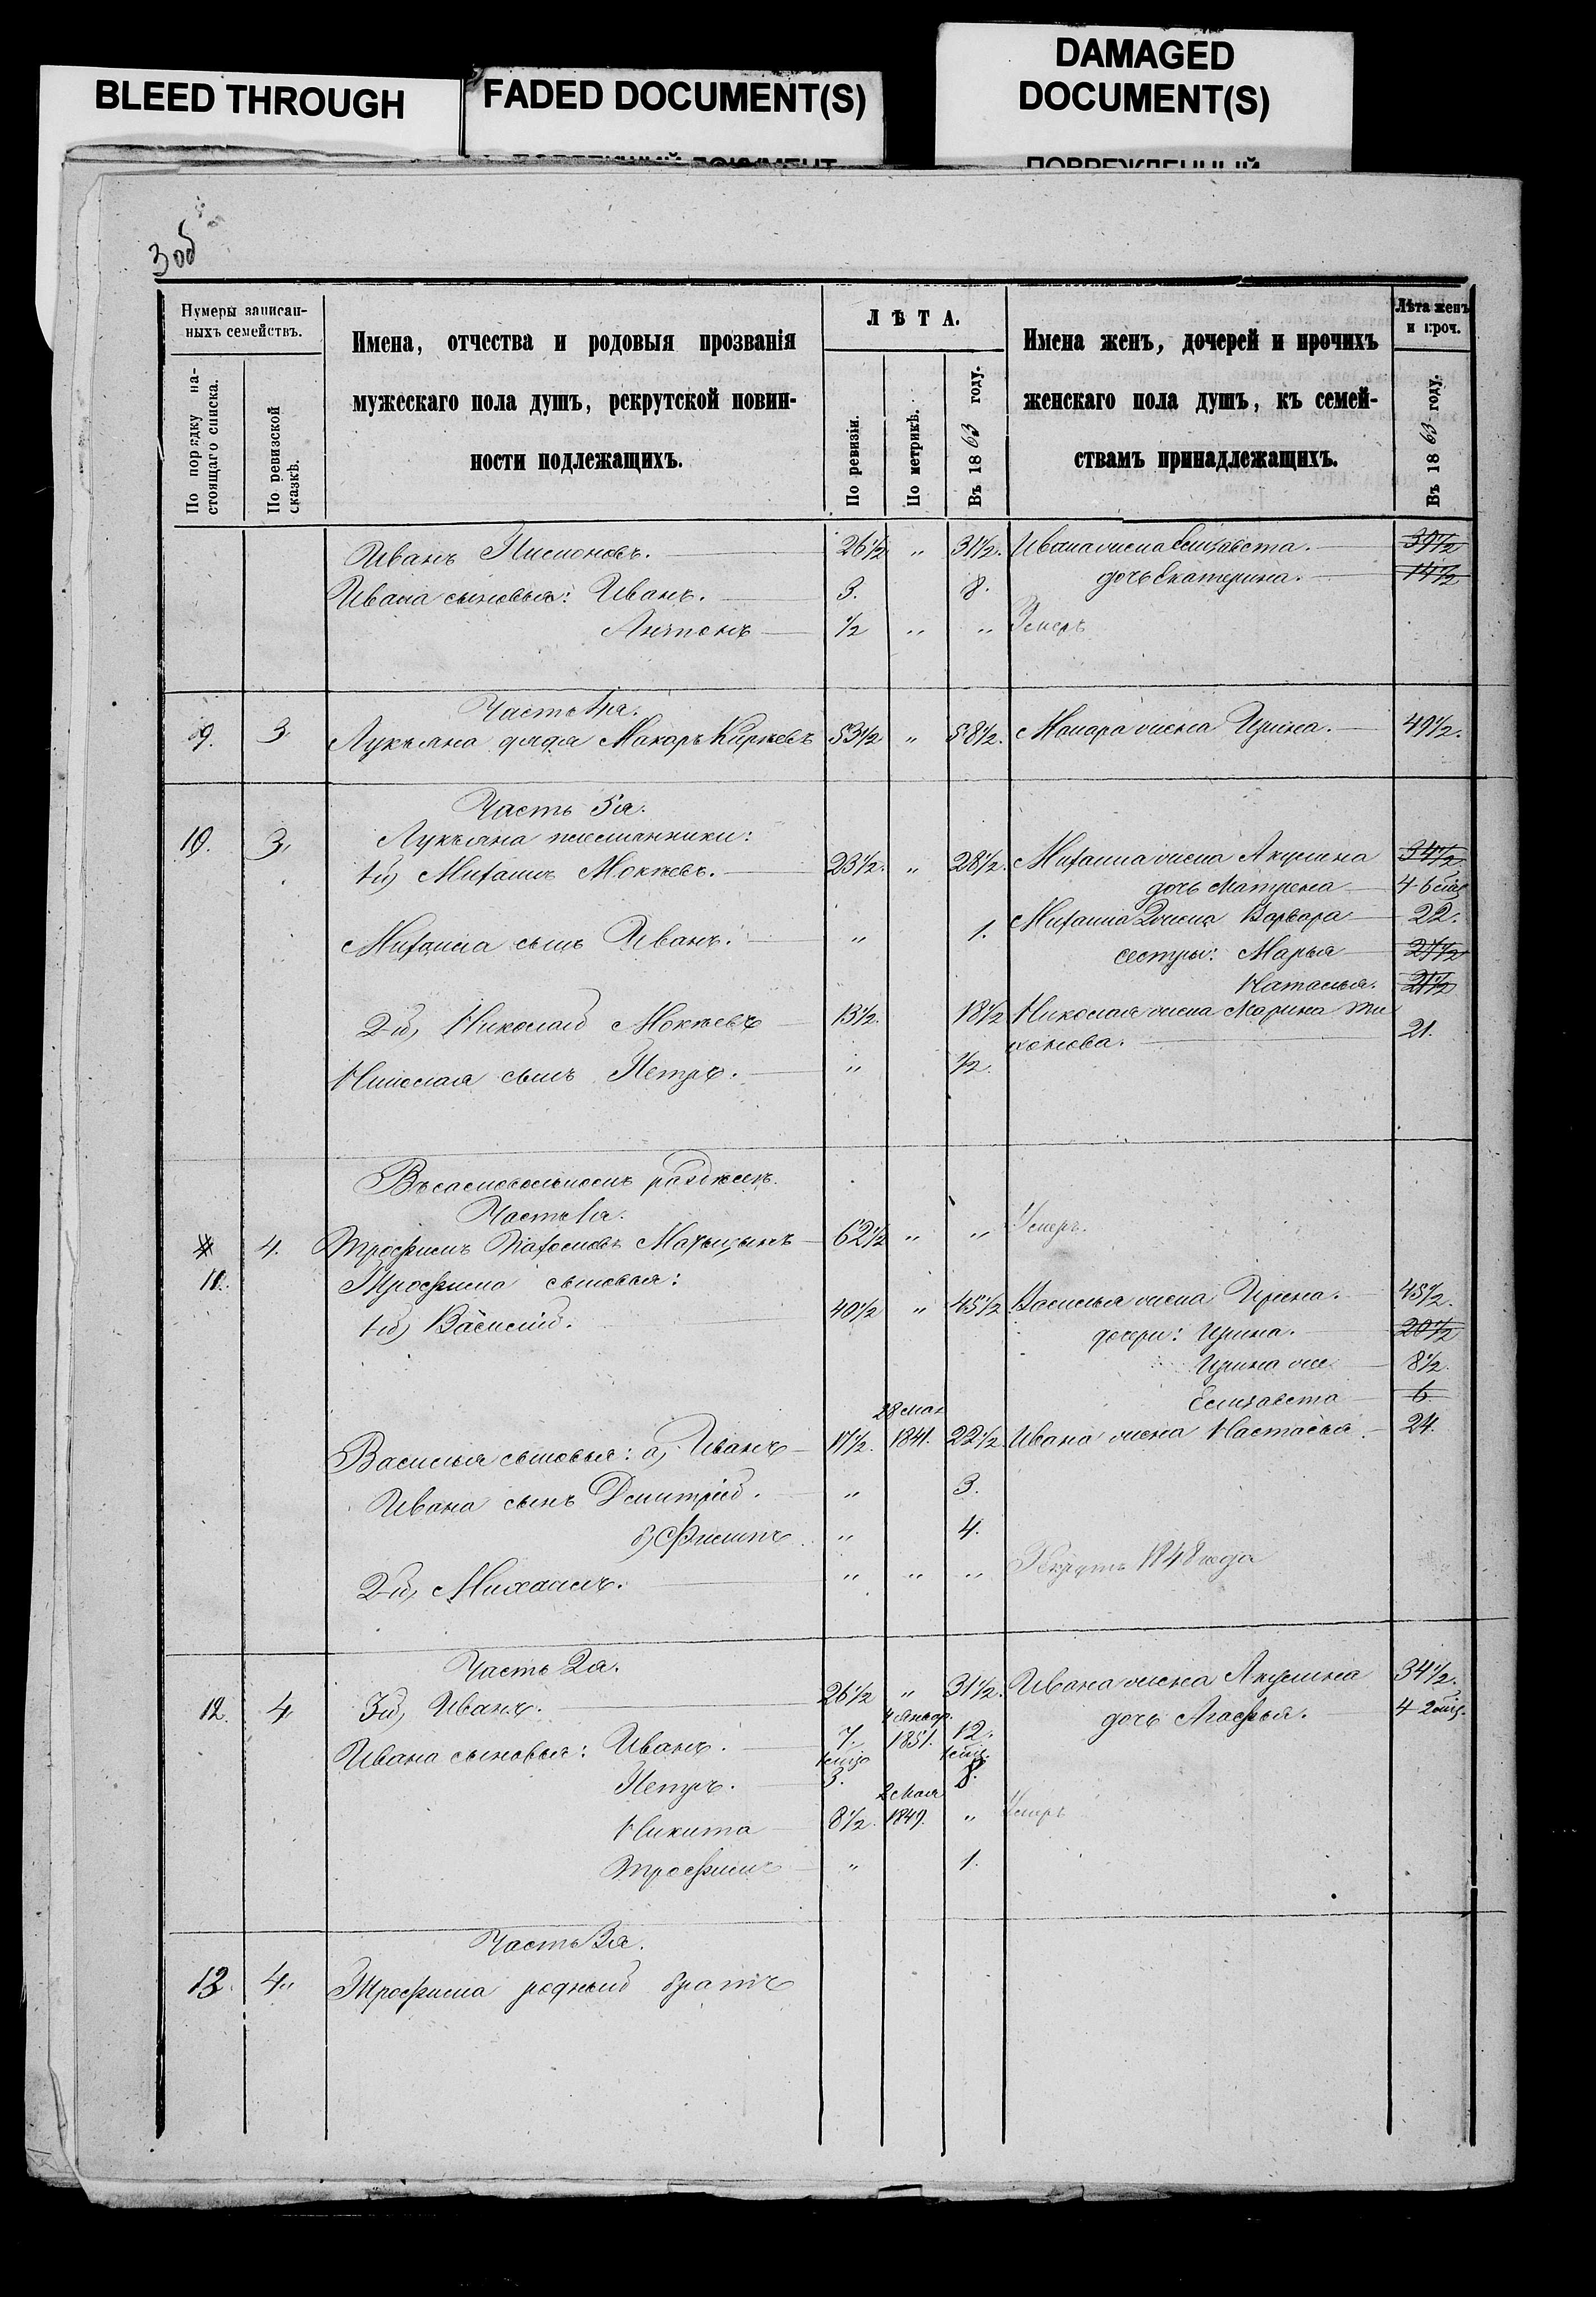 BLEED THROUGH
FADED DOCUMENT(S)
DAMAGED
DOCUMENT(S)
3 об
Нумеры записан-
ныхъ семействъ.
По порядку на-
стоящаго списка.
По ревизской
сказкѣ.
Имена, отчества и родовыя прозванія
мужескаго пола душъ, рекрутской повин-
ности подлежащихъ.
ЛѢТА.
По ревизіи.
По метрикѣ.
Въ 1863 году.
Имена женъ, дочерей и прочихъ
женскаго пола душъ, къ семей-
ствамъ принадлежащихъ.
Лѣта женъ
и проч.
Въ 1863 году.
Иванъ 26½ " 31½. Ивана жена Елизавета. 39½
дочь Екатерина. 14½
Ивана сыновья: Иванъ. 3. 8.
Антонъ ½ " " Умеръ
Часть 4я.
9. 3. Лукьяна дядя Макаръ 53½ " 58½. Макара жена Ирина. 49½.
Часть 5я.
10. 3. Лукьяна племянники:
1й) Михаилъ Мокѣевъ. 23½. " 28½. Михаила жена Акулина 34½
дочь Матрена 4
Михаила сынъ Иванъ. " 1. Михаила 2 жена Варвара 22.
сестры: Марья 27½
Наталья. 21½
2й, Николай Мокѣевъ 13½. 18½ Николая жена Марина Ти
хонова. 21.
Николая сынъ Петръ. " ½.
Въ самовольномъ раздѣлѣ.
Часть 1я.
11. 4. Трофимъ 62½ " " Умеръ.
Трофима сыновья:
1й) Василій. 40½ " 45½ Василья жена Ирина. 45½.
дочери: Ирина. 20½
Ирина же 8½.
Елизавета 6
28 мая
Василья сыновья: а, Иванъ 17½. 1841. 22½ Ивана жена Настасья. 24.
Ивана сынъ Дмитрій. " 3.
б) Филипъ " 4.
2й, Михаилъ. " " " Рекрутъ 1848 года
Часть 2я.
12. 4 3й, Иванъ. 26½ " 31½. Ивана жена Акулина 34½.
дочь Агафья. 4
4 Январ.
Ивана сыновья: Иванъ. 7. 1851. 12.
Петръ. 3. 8.
2 Мая
Никита 8½. 1849. " Умеръ
Трофимъ " 1.
Часть 3я.
13. 4. Трофима родный братъ